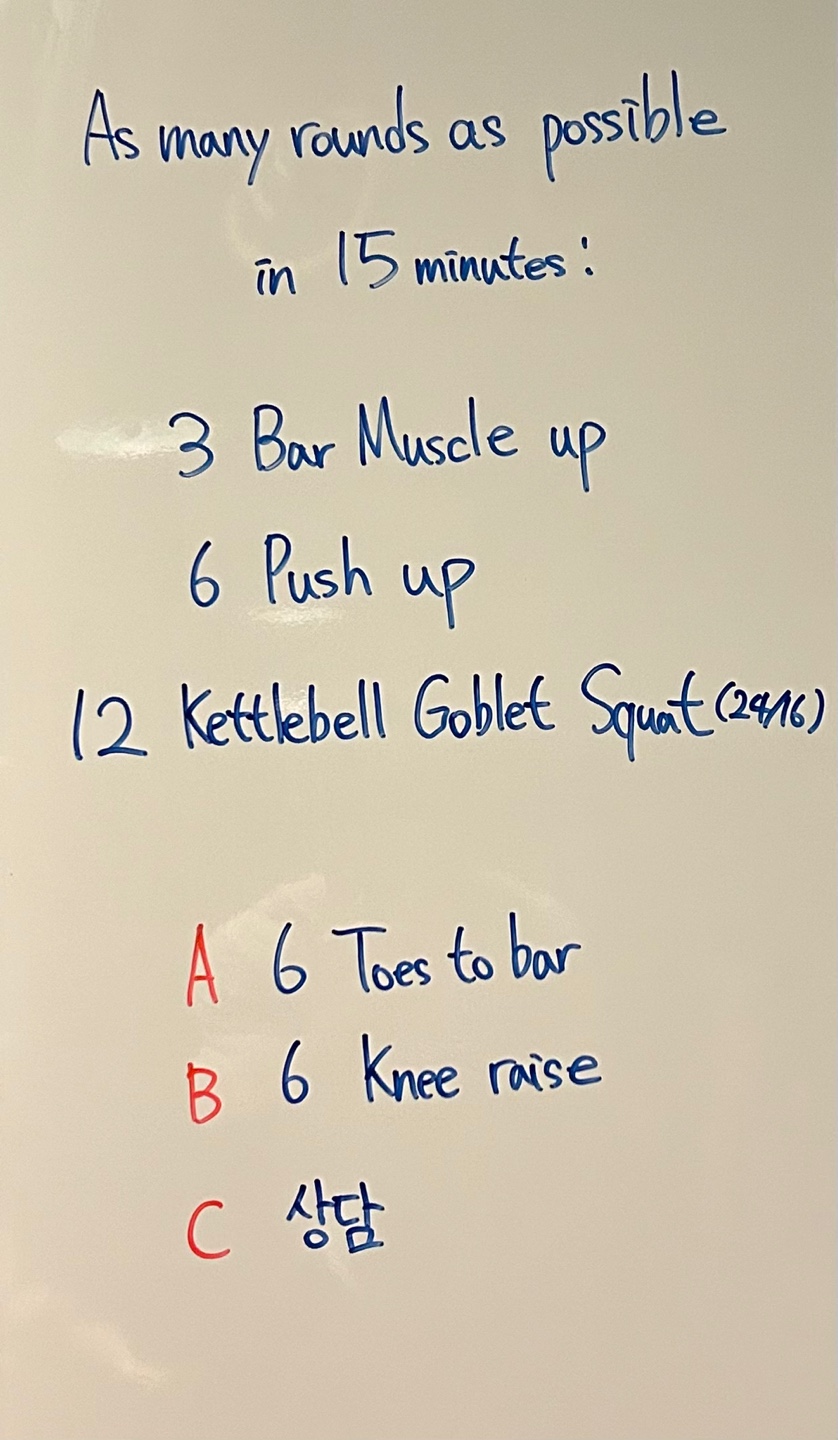 As many rounds as possible
in 15 minutes:
3 Bar Muscle up
6 Push up
12 Kettlebell Goblet Squat (24/16)
A 6 Toes to bar
B 6 Knee raise
C 상담